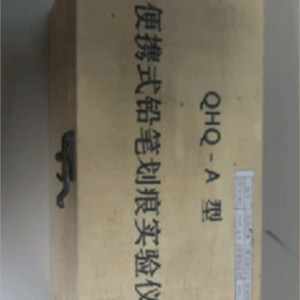 QHQ-A 型
便携式铅笔划痕实验仪